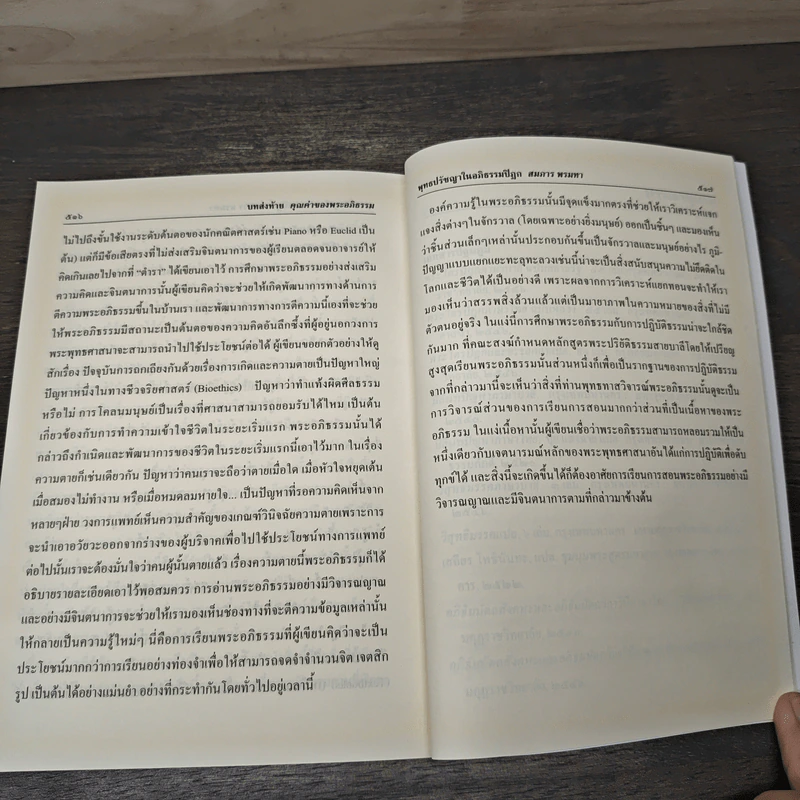 ๕๑๖
บทส่งท้าย คุณค่าของพระอภิธรรม
ไม่ไปถึงขั้นใช้งานระดับต้นตอของนักคณิตศาสตร์เช่น Piano หรือ Euclid เป็น
ต้น) แต่ก็มีข้อเสียตรงที่ไม่ส่งเสริมจินตนาการของผู้เรียนตลอดจนอาจารย์ให้
คิดเกินเลยไปจากที่ “ตำรา” ได้เขียนเอาไว้ การศึกษาพระอภิธรรมอย่างส่งเสริม
ความคิดและจินตนาการนั้นผู้เขียนคิดว่าจะช่วยให้เกิดพัฒนาการทางด้านการ
ตีความพระอภิธรรมขึ้นในบ้านเรา และพัฒนาการทางการตีความนี้เองที่จะช่วย
ให้พระอภิธรรมมีสถานะเป็นต้นตอของความคิดอันลึกซึ้งที่ผู้อยู่นอกวงการ
พระพุทธศาสนาจะสามารถนำไปใช้ประโยชน์ต่อได้ ผู้เขียนขอยกตัวอย่างให้ดู
สักเรื่อง ปัจจุบันการถกเถียงกันด้วยเรื่องการเกิดและความตายเป็นปัญหาใหญ่
ปัญหาหนึ่งในทางชีวจริยศาสตร์ (Bioethics) ปัญหาว่าทำแท้งผิดศีลธรรม
หรือไม่ การโคลนมนุษย์เป็นเรื่องที่ศาสนาสามารถยอมรับได้ไหม เป็นต้น
เกี่ยวข้องกับการทำความเข้าใจชีวิตในระยะเริ่มแรก พระอภิธรรมนั้นได้
กล่าวถึงกำเนิดและพัฒนาการของชีวิตในระยะเริ่มแรกนี้เอาไว้มาก ในเรื่อง
ความตายก็เช่นเดียวกัน ปัญหาว่าคนเราจะถือว่าตายเมื่อใด เมื่อหัวใจหยุดเต้น
เมื่อสมองไม่ทำงาน หรือเมื่อหมดลมหายใจ... เป็นปัญหาที่รอความคิดเห็นจาก
หลายๆฝ่าย วงการแพทย์เห็นความสำคัญของเกณฑ์วินิจฉัยความตายเพราะการ
จะนำเอาอวัยวะออกจากร่างของผู้บริจาคเพื่อไปใช้ประโยชน์ทางการแพทย์
ต่อไปนั้นเราจะต้องมั่นใจว่าคนผู้นั้นตายแล้ว เรื่องความตายนี้พระอภิธรรมก็ได้
อธิบายรายละเอียดเอาไว้พอสมควร การอ่านพระอภิธรรมอย่างมีวิจารณญาณ
และอย่างมีจินตนาการจะช่วยให้เรามองเห็นช่องทางที่จะตีความข้อมูลเหล่านั้น
ให้กลายเป็นความรู้ใหม่ๆ นี่คือการเรียนพระอภิธรรมที่ผู้เขียนคิดว่าจะเป็น
ประโยชน์มากกว่าการเรียนอย่างท่องจำเพื่อให้สามารถจดจำจำนวนจิต เจตสิก
รูป เป็นต้น ได้อย่างแม่นยำ อย่างที่กระทำกันโดยทั่วไปอยู่เวลานี้
พุทธปรัชญาในอภิธรรมปิฎก สมภาร พรมทา
๕๑๗
องค์ความรู้ในพระอภิธรรมนั้นมีจุดแข็งมากตรงที่ช่วยให้เราวิเคราะห์แจก
แจงสิ่งต่างๆในจักรวาล (โดยเฉพาะอย่างยิ่งมนุษย์) ออกเป็นชิ้นๆ และมองเห็น
ว่าชิ้นส่วนเล็กๆเหล่านั้นประกอบกันขึ้นเป็นจักรวาลและมนุษย์อย่างไร ภูมิ-
ปัญญาแบบแยกแยะทะลุทะลวงเช่นนี้น่าจะเป็นสิ่งสนับสนุนความไม่ยึดติดใน
โลกและชีวิตได้เป็นอย่างดี เพราะผลจากการวิเคราะห์แยกทอนจะทำให้เรา
มองเห็นว่าสรรพสิ่งล้วนแล้วแต่เป็นมายาภาพในความหมายของสิ่งที่ไม่มี
ตัวตนอยู่จริง ในแง่นี้การศึกษาพระอภิธรรมกับการปฏิบัติธรรมน่าจะใกล้ชิด
กันมาก ที่คณะสงฆ์กำหนดหลักสูตรพระปริยัติธรรมสายบาลีโดยให้เปรียญ
สูงสุดเรียนพระอภิธรรมนั้นส่วนหนึ่งก็เพื่อเป็นรากฐานของการปฏิบัติธรรม
จากที่กล่าวมานี้จะเห็นว่าสิ่งที่ท่านพุทธทาสวิจารณ์พระอภิธรรมนั้นดูจะเป็น
การวิจารณ์ส่วนของการเรียนการสอนมากกว่าส่วนที่เป็นเนื้อหาของพระ
อภิธรรม ในแง่เนื้อหานั้นผู้เขียนเชื่อว่าพระอภิธรรมสามารถหลอมรวมให้เป็น
หนึ่งเดียวกับเจตนารมณ์หลักของพระพุทธศาสนาอันได้แก่การปฏิบัติเพื่อดับ
ทุกข์ได้ และสิ่งนี้จะเกิดขึ้นได้ก็ต้องอาศัยการเรียนการสอนพระอภิธรรมอย่างมี
วิจารณญาณและมีจินตนาการตามที่กล่าวมาข้างต้น